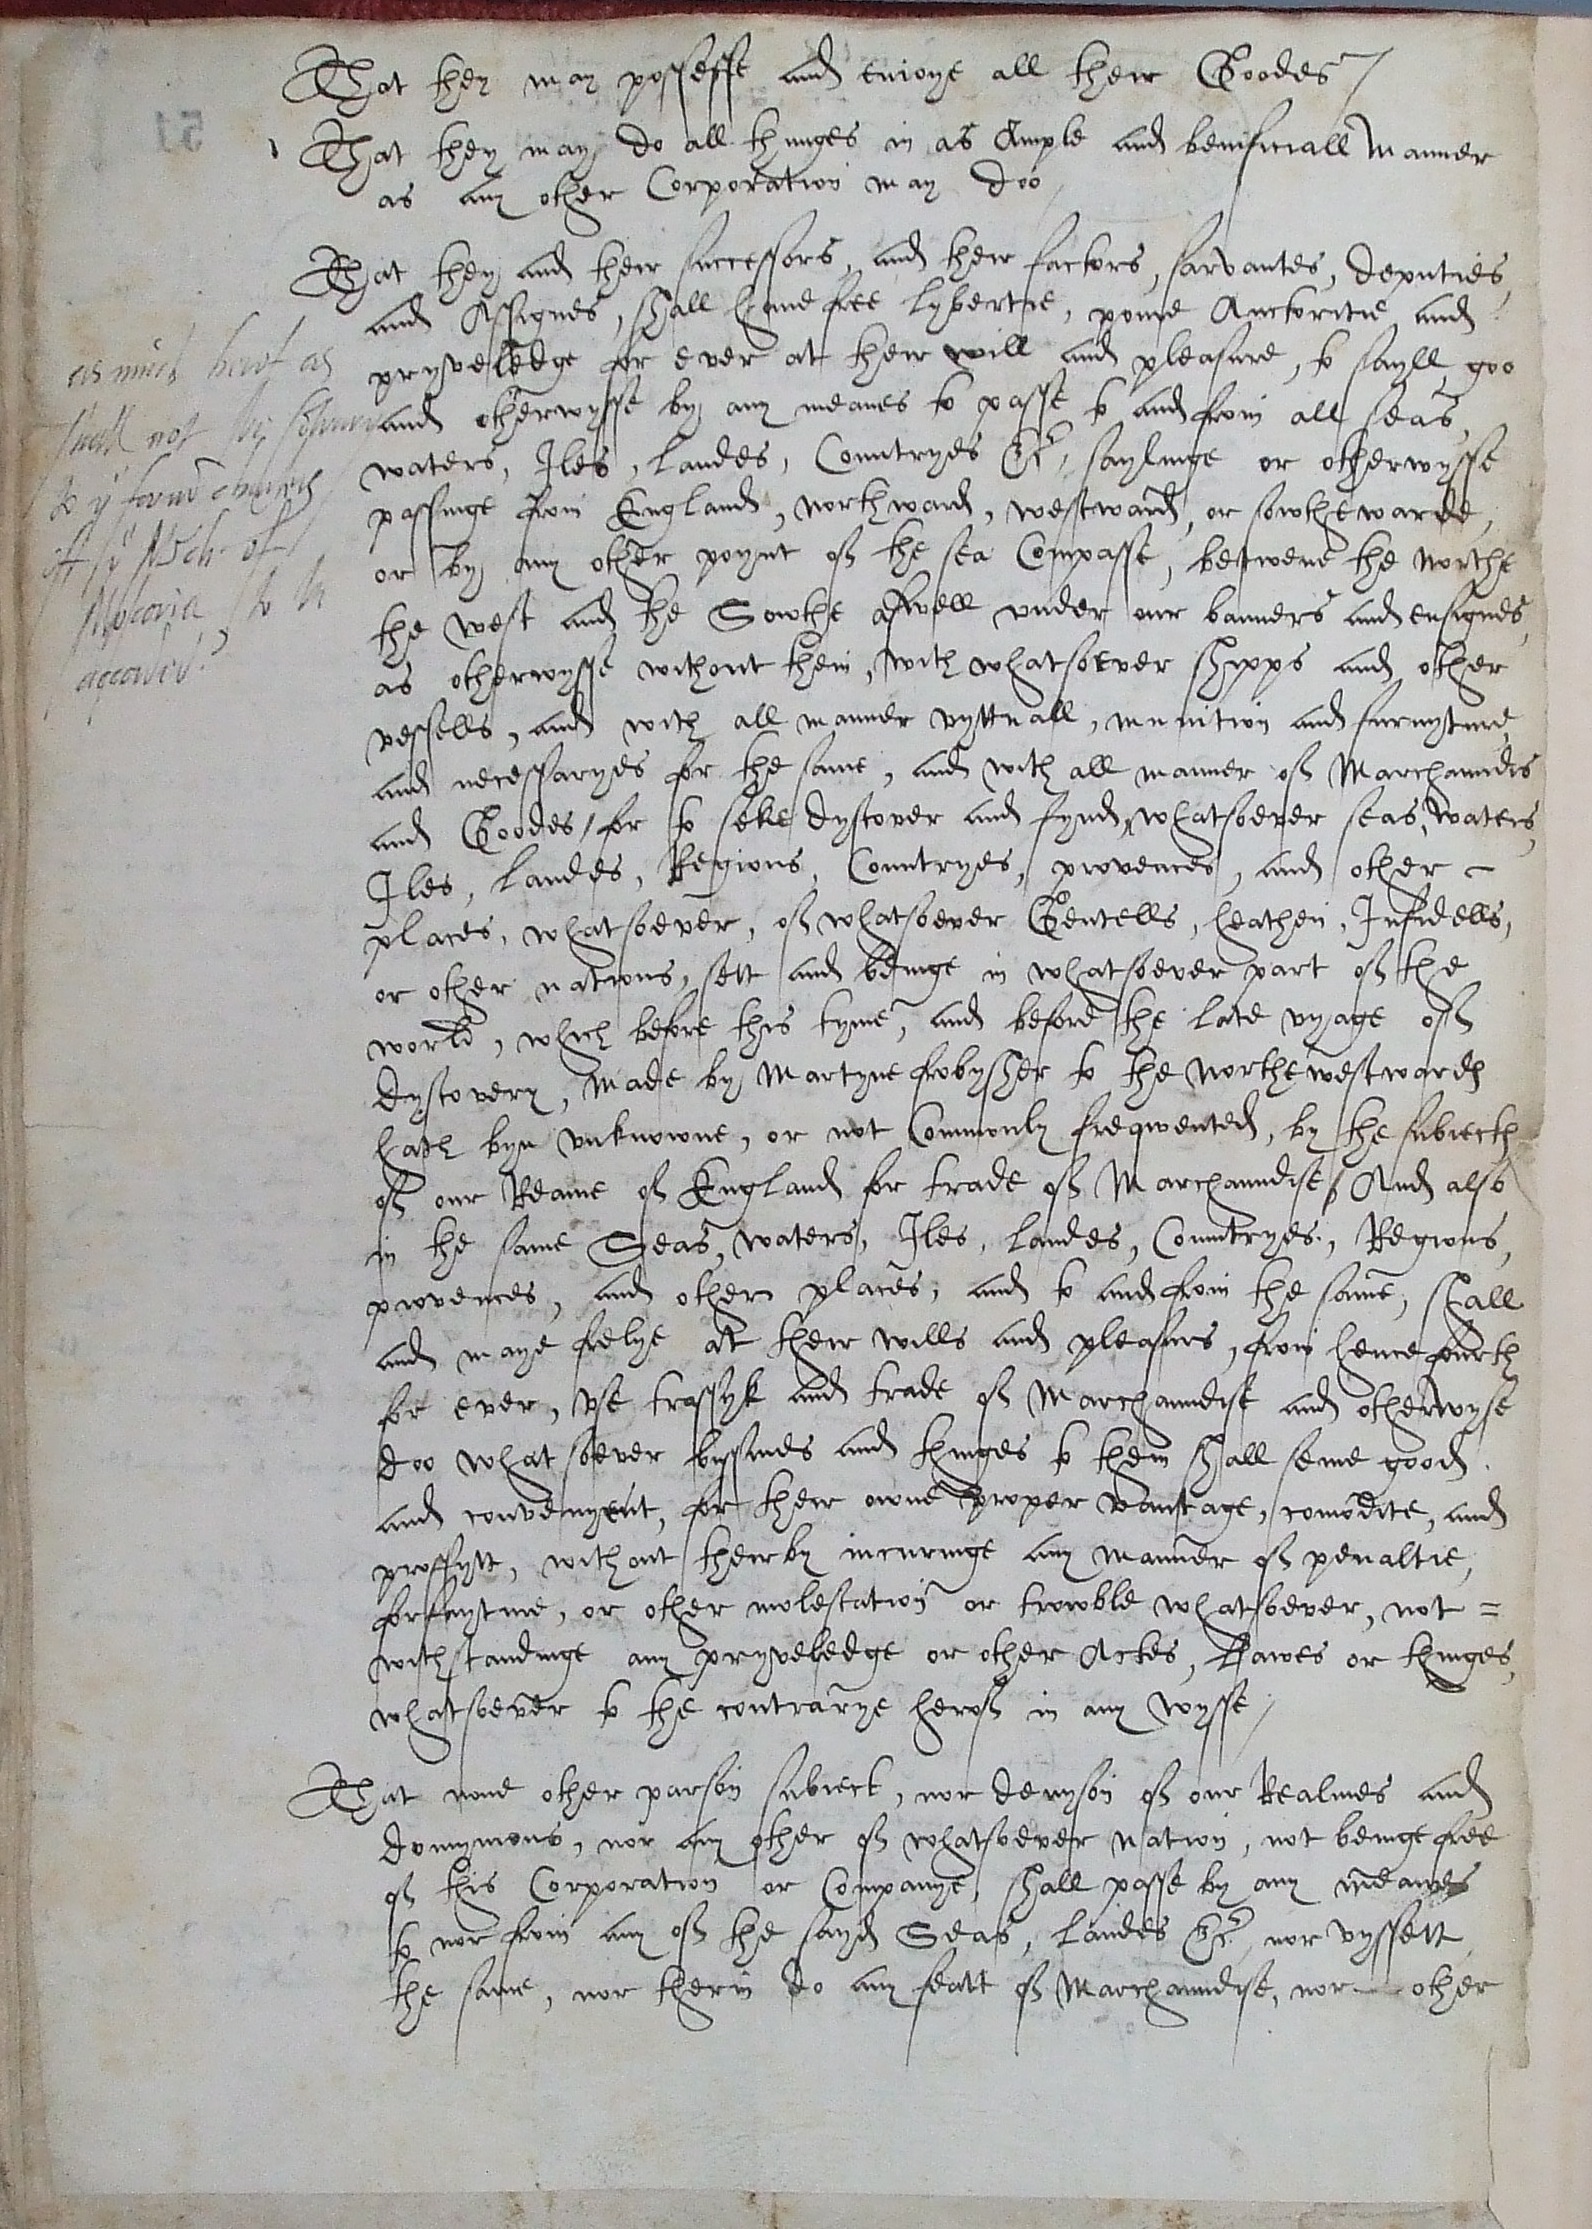 That they may possesse and enioye all their Goodes /
That they may do all thinges in as Ample and benificiall Manner
as any other Corporation may doo,
That they and their successors, and their factors, sarvantes, deputies,
and Assignes, shall have free lybertie, powre Auctoritie and
pryveledge for ever at their will and pleasure, to sayll, goo
and otherwysse by any meanes to passe to and from all seas,
waters, Iles, landes, Countryes &c, saylinge or otherwysse
passinge from England, northward, westward, or sowthewarde,
or by any other poynt of the sea Compasse, betwene the Northe
the west and the Sowthe aswell under our banners and ensignes,
as otherwysse without them, with whatsoever shipps and other
vessells, and with all manner vyttuall, munition and furnyture,
and necessaryes for the same, and with all manner of Marchaundis
and Goodes / for to seke dyscover and fynd, whatsoever seas, waters,
Iles, landes, Regions, Countryes, provences, and other -
places, whatsoever, of whatsoever Gentells, heathen, Infidells,
or other nations, sett and beinge in whatsoever part of the
world, which before this tyme, and before the late vyage of
dyscovery, made by Martyne frobysher to the Northewestward
hath byn unknowne, or not Commonly freqwented, by the subiectes
of our Reame of England for trade of Marchaundise / And also
in the same Seas, waters, Iles, landes, Countryes, Regions,
provences, and other places, and to and from the same, shall
and maye frelye at their wills and pleasurs, from hencefourth
for ever, vse traffyk and trade of Marchaundise and otherwyse
doo whatsoever byssines and thinges to them shall seme good
and convenyent, for their owne proper vantage, comodite, and
proffytt, without therby incuringe any manner of penaltie,
forfeyture, or other molestation or trowble whatsoever, not =
withstandinge any pryveledge or other Actes, Lawes or thinges,
whatsoever to the contrarye herof in any wysse /
That none other parson subiect, nor denyson of our Realmes and
domynions, nor any other of whatsoever nation, not beinge free
of this Corporation or Companye, shall passe by any meanes
to nor from any of the sayd Seas, landes &c, nor vyssett
the same, nor therin do any featt of Marchaundise, nor other
as much herof as
shall not be
to ye former
of ye